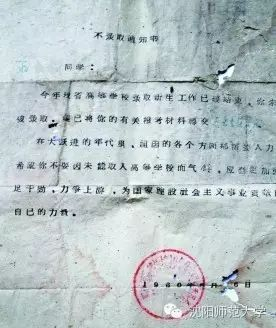 不录取通知书
同学：
今年我省高等学校录取新生工作已经结束，你未
被录取。现已将你的有关报考材料转交
在大跃进的年代里，祖国的各个方面都需要人力
希望你不要因未能取入高等学校而气，应当更加
足干劲，力争上游，为国家建设社会主义事业贡献
自己的力量。
1960年 月 6日
沈阳师范大学